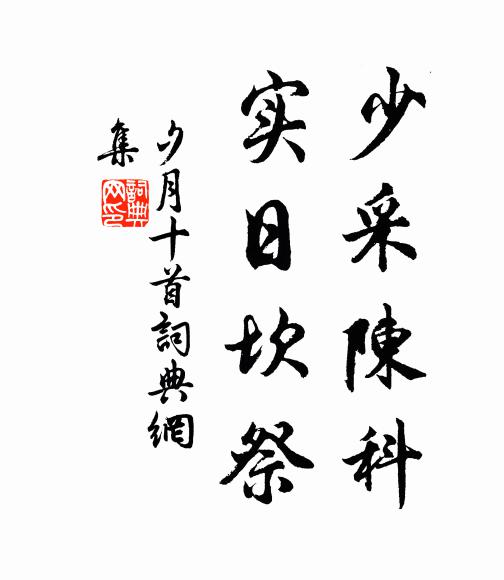 少采陳科
实日坎祭
夕月十首詞典網
集
詞典
网印